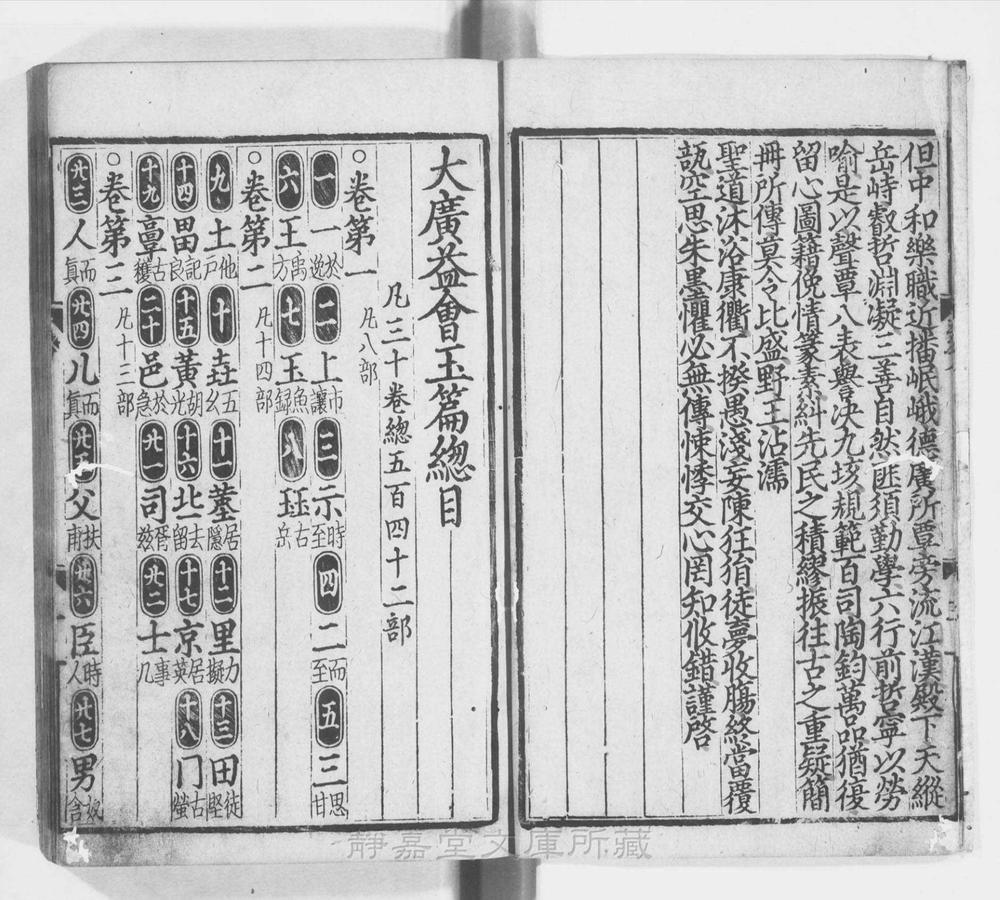 但中和樂職近播岷峨德廣所覃旁流江漢殿下天縱
岳峙叡哲淵凝三善自然匪須勤學六行前哲寧以勞
喻是以聲覃八表譽决九垓規範百司陶鈞萬品猶復
留心圖籍俛情篆素糾先民之積繆振往古之重疑簡
冊所傳莫令比盛野王沾濡
聖道沐浴康衢不揆愚淺妄陳狂狷徒夢收膓終當覆
瓿空思朱墨懼必無傳悚悸交心罔知攸錯謹啓
大廣益會玉篇總目
凡三十卷總五百四十二部
○卷第一 凡八部
一 一 於逸 二 上 市讓 三 示 時至 四 二 而至 五 三 思甘
六 王 禹方 七 玉 魚録 八 玨 古岳
○卷第二 凡十四部
九 土 他戸 十 垚 五幺 十一 堇 居隱 十二 里 力擬 十三 田 徒堅
十四 畕 記良 十五 黃 胡光 十六 丘 去留 十七 京 居英 十八 冂 古螢
十九 𩫏 古獲 二十 邑 於急 廿一 司 胥兹 廿二 士 事几
○卷第三 凡十三部
廿三 人 而眞 廿四 儿 而眞 廿五 父 扶甫 廿六 臣 時人 廿七 男 奴含
静嘉堂文庫所藏